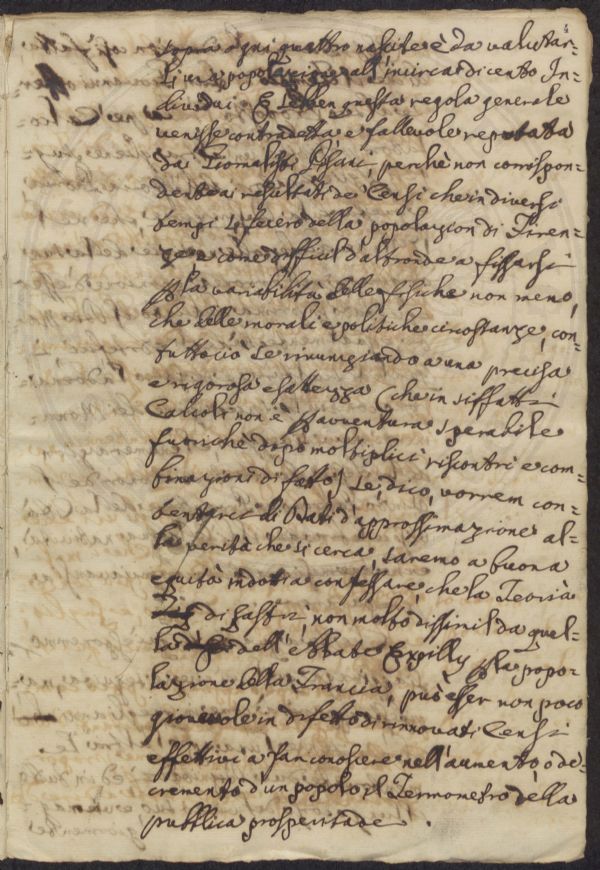 sopra ogni quattro nascite è da valutar-
si una popolazione all'incirca di cento In-
dividui. E sebben questa regola generale
venisse contradetta e fallevole reputata
da' Giornalisti Pisani, perchè non corrispon-
dente a' risultati de' Censi che in diversi
tempi si fecero della popolazion di Firen-
ze e come difficil d'altronde a fissarsi
p la variabilità delle fisiche non meno,
che delle morali e politiche circostanze, con-
tuttociò se rinunziando a una precisa
e rigorosa esattezza (che in siffatti
Calcoli non è p avventura sperabile
fuorichè dopo moltiplici riscontri e com-
binazioni di fatto) se, dico, vorrem con-
tentarci di Dati d'approssimazione al-
la verità che si cerca, saremo a buona
equità indotti a confessare, che la Teoria
di Gastiz, non molto dissimil da quel-
la dell'Abbate Expilly p la popo-
lazione della Francia, può esser non poco
giovevole in difetto di rinnovati Censi
effettivi a far conoscere nell'aumento o de-
cremento d'un popolo, il Termometro della
pubblica prosperitade.